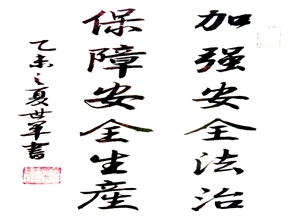 加强安全法治
保障安全生產
乙未之夏世军書